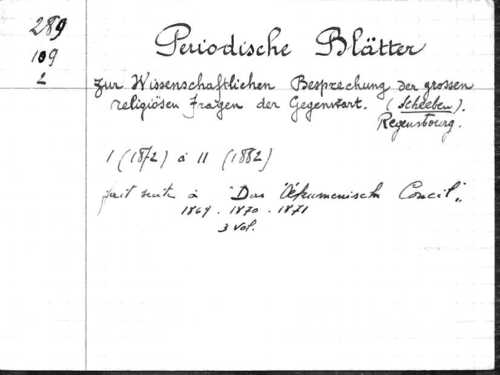 289
109
2
Periodische Blätter
zur Wissenschaftlichen Besprechung der grossen
religiösen Fragen der Gegenwart. (Scheeben).
Regensburg.
I (1872) à 11 (1882)
fait suite à "Das Ökumenisch Concil"
1869 - 1870 - 1871
3 vol.